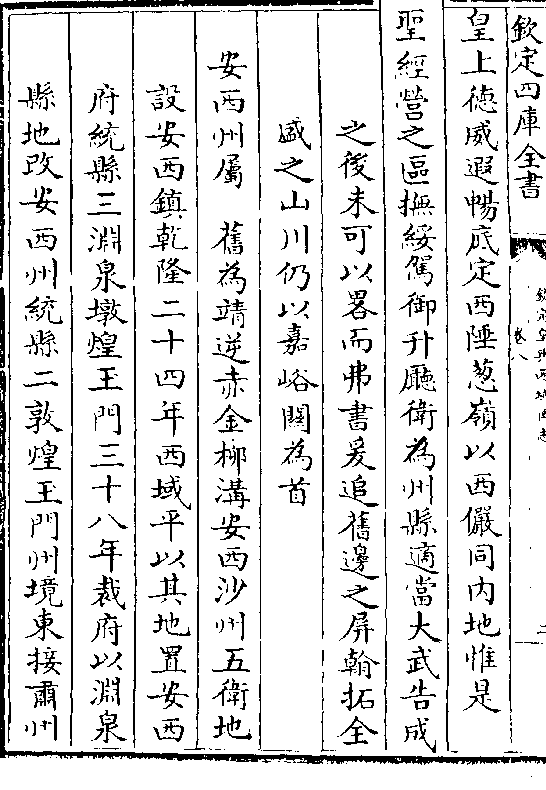 欽定四庫全書
欽定皇輿西域圖志
卷八
二
皇上德威遐暢底定西陲葱嶺以西儼同内地惟是
聖經營之區撫綏駕御升廳衛為州縣適當大武告成
之後未可以畧而弗書爰追舊邊之屏翰拓全
盛之山川仍以嘉峪關為首
安西州屬 舊為靖逆赤金柳溝安西沙州五衛地
設安西鎮乾隆二十四年西域平以其地置安西
府統縣三淵泉墩煌玉門三十八年裁府以淵泉
縣地改安西州統縣二敦煌玉門州境東接肅州